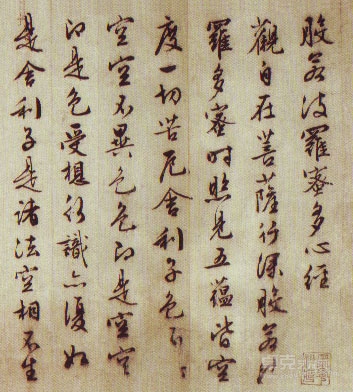 般若波羅蜜多心經
觀自在菩薩行深般若波
羅多蜜時照見五蘊皆空
度一切苦厄舍利子色不
空空不異色色即是空空
即是色受想行識亦復如
是舍利子是諸法空相不生